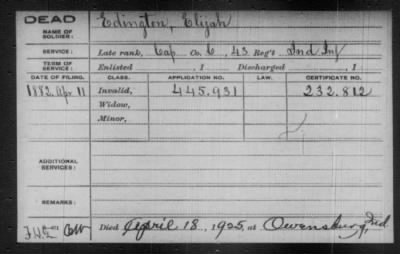 DEAD
NAME OF SOLDIER: Edington, Elijah
SERVICE: Late rank, Cap Co. C, 43 Reg't Ind Inf
TERM OF SERVICE: Enlisted , 1 Discharged , 1
DATE OF FILING. CLASS. APPLICATION NO. LAW. CERTIFICATE NO.
1882. Apr 11 Invalid, 445.931 232.812
Widow,
Minor,
ADDITIONAL SERVICES:
REMARKS:
Died April 18, 1925, at Owensburg, Ind